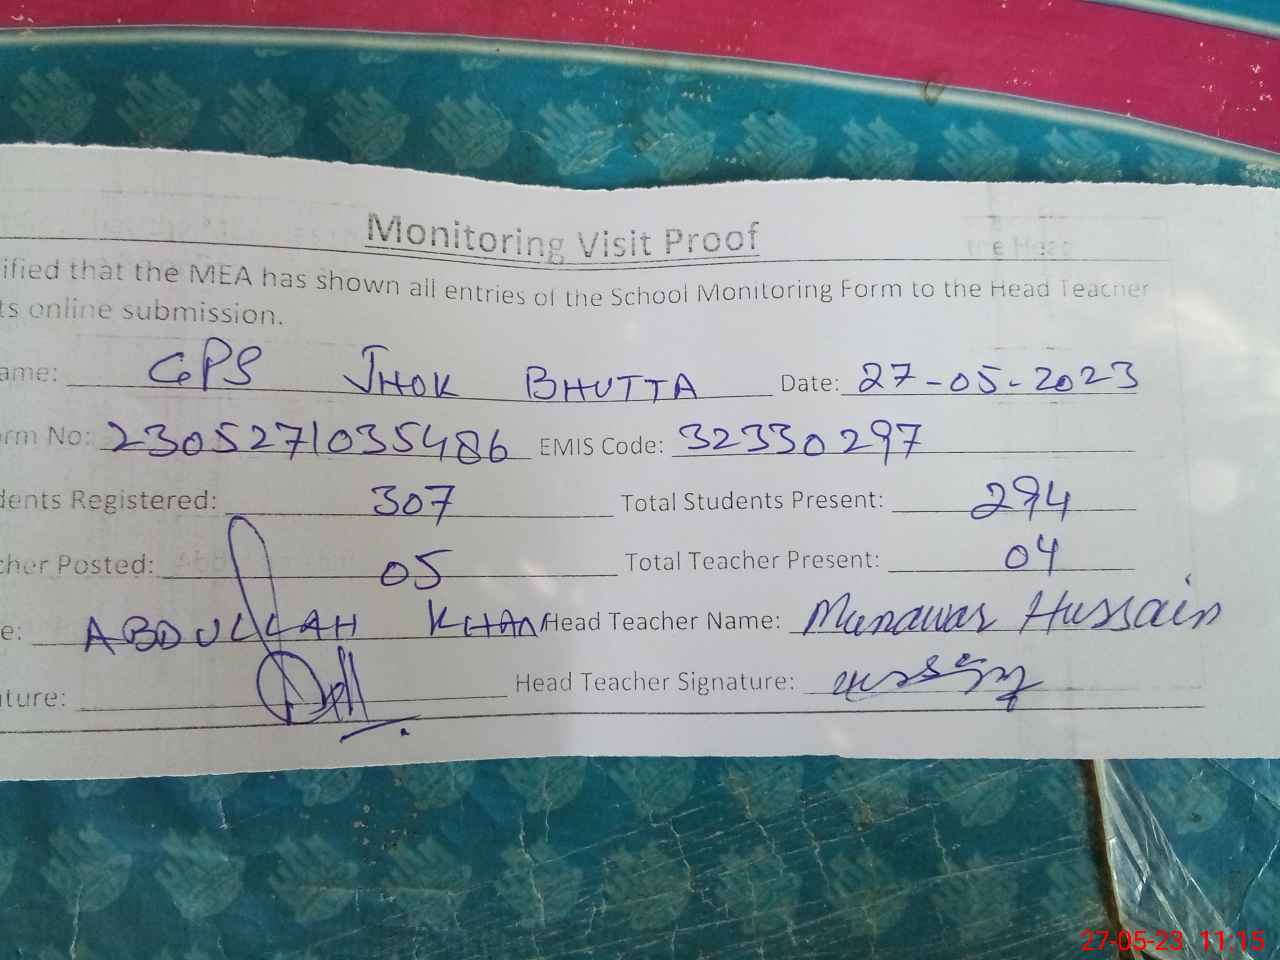 Monitoring Visit Proof
ified that the MEA has shown all entries of the School Monitoring Form to the Head Teacher
ts online submission.
ame: GPS JHOK BHUTTA Date: 27-05-2023
rm No: 2305271035486 EMIS Code: 32330297
dents Registered: 307 Total Students Present: 294
cher Posted: 05 Total Teacher Present: 04
e: ABDULLAH KHAN Head Teacher Name: Munawar Hussain
ture: Head Teacher Signature:
27-05-23 11:15